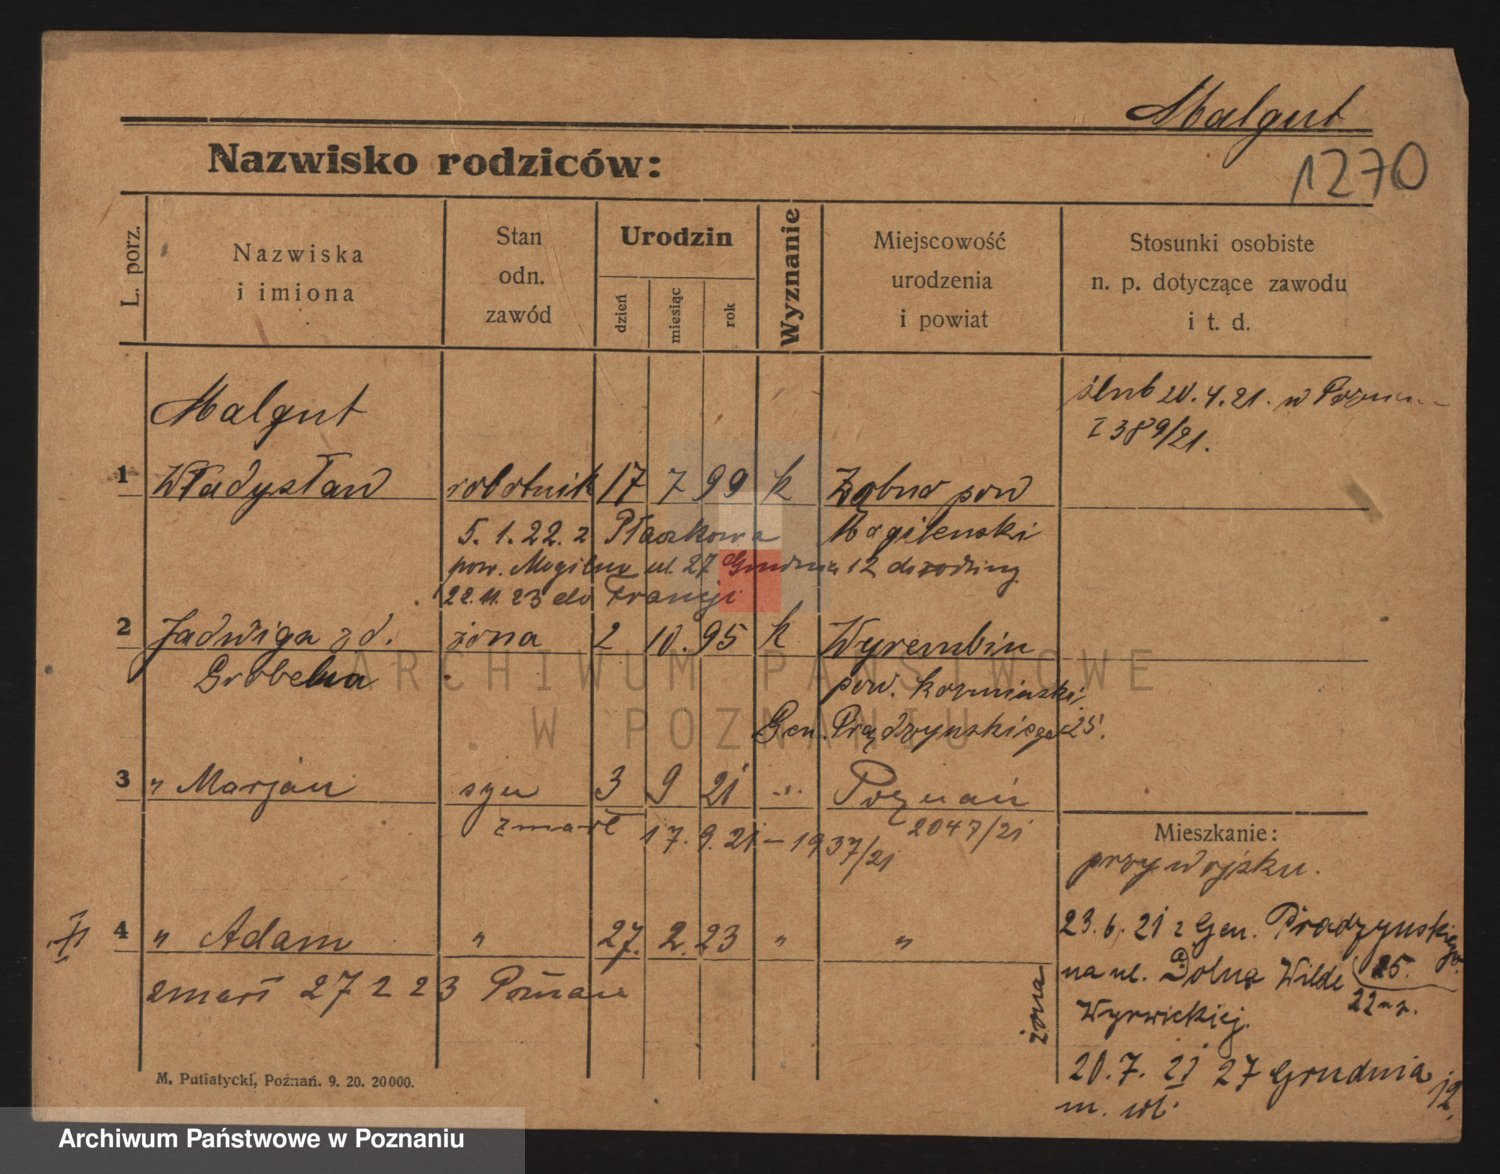 Malgut
1270
Nazwisko rodziców:
L. porz.
Nazwiska
i imiona
Stan
odn.
zawód
Urodzin
dzień
miesiąc
rok
Wyznanie
Miejscowość
urodzenia
i powiat
Stosunki osobiste
n. p. dotyczące zawodu
i t. d.
Malgut
ślub 20. 4. 21. w
I 389/21.
1 Władysław robotnik 17 7 99 k Żabno pow
5. 1. 22. z Płaczkowa Mogilenski
pow. Mogilno ul. 27 Grudnia 12 do rodziny
22. 11. 23 do Francji
2 Jadwiga zd. żona 2 10. 95 k Wyrembin
Grobelna
pow.
Gen. Prądzynskiego 25.
3 " Marjan syn 3 9 21 " Poznań
zmarł 17. 9. 21 – 1937/21 2047/21
Mieszkanie:
przy wojsku.
4 " Adam " 27. 2. 23 " "
zmarł 27 2 23 Poznań
żona
23. 6. 21 z Gen. Prądzynskiego 25.
na ul. Dolna Wilde
22
Wyrwickiej.
20. 7. 21 27 Grudnia 12.
m. wł.
M. Putiatycki, Poznań. 9. 20. 20000.
ARCHIWUM PAŃSTWOWE
W POZNANIU
Archiwum Państwowe w Poznaniu